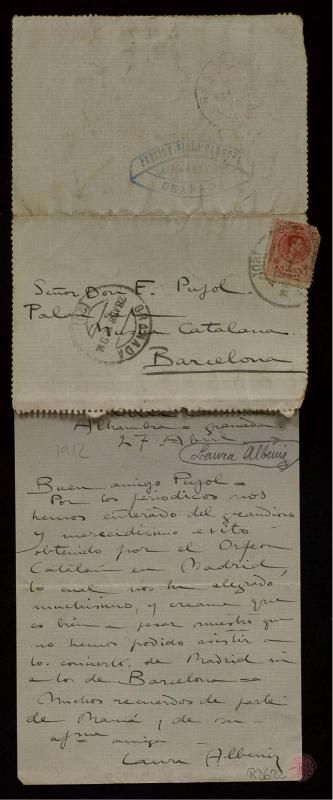 PENSION VILLA CARMONA
ALHAMBRA
GRANADA
Señor Don F. Pujol.
Palau Musica Catalana.
Barcelona
GRANADA
28 ABR 12
Alhambra = Granada
27 Abril
1912
Laura Albeniz
Buen amigo Pujol =
Por los periodicos nos
hemos enterado del grandioso
y merecidisimo exito
obtenido por el Orfeon
Catalán en Madrid,
lo cual nos ha alegrado
muchisimo, y creame que
es bien a pesar nuestro que
no hemos podido asistir a
los conciertos de Madrid ni
a los de Barcelona =
Muchos recuerdos de parte
de Mamá y de su
afma amiga
Laura Albeniz